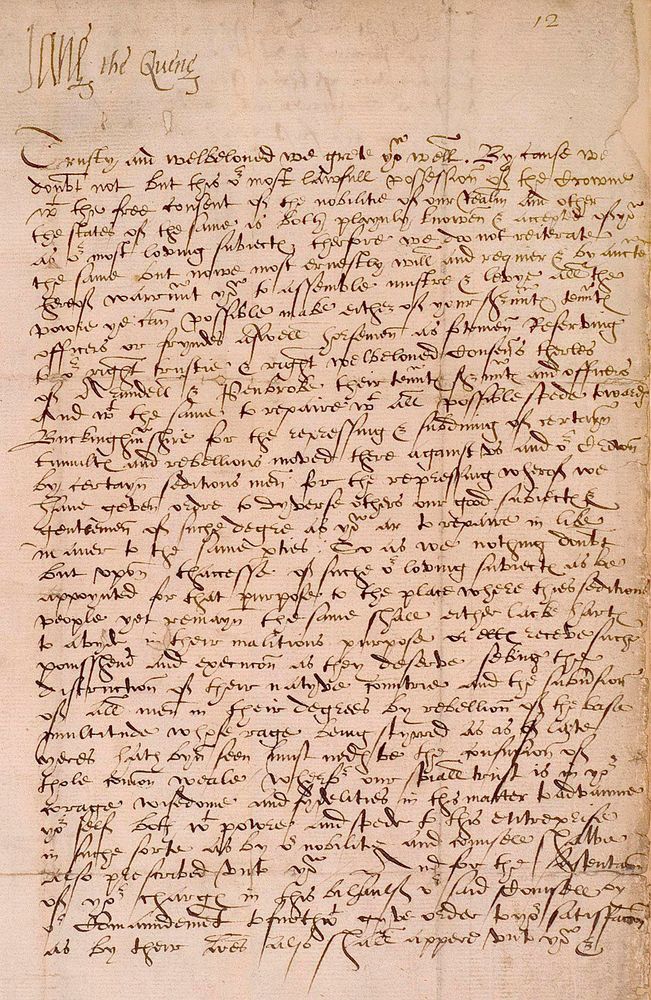 12
Jane the Quene
Trusty and welbeloved we grete yow well. By cause we
doubt not but this oʳ most lawfull possession of the Crowne
wᵗ the free consent of the nobilitie of our realm and other
the states of the same is both playnly knowen & accepted of yow
as oʳ most loving subiects therfore we do not reiterate
the same but nowe most ernestly will and require & by
therof warraunt yow to assemble mustre & levye all the
powre ye can possible make either of your
officers or fryndes aswell horsemen as fotemen Reserving
to oʳ right trustie & right welbeloved Cousens
of Arundell & Penbroke their and officers
And wᵗ the same to repaire wᵗ all possible spede towards
Buckinghmshire for the repressing & subduing of certayn
tumults and rebellions moved there against us and oʳ Crown
by certayn seditious men for the repressing wherof we
have geven ordre to dyverse others our good subiects &
gentlemen of suche degre as yow ar to repaire in like
maner to the same So as we nothing doubt
but upon thaccesse of suche oʳ loving subiects as be
appoynted for that purpose to the place where thies seditious
people yet remayn the same shall either lacke harts
to abyde in their malitious purpose or ells receve suche
and as they deserve seking the
distruction of their natyve countrie and the subversion
of all men in their degrees by rebellion of the base
multitude whose rage being styrred as as of late
yeres hath byn seen must nedes be the confusion of
thole comon weale wherfore our speciall trust is in yoʳ
corage wisedome and fydelities in this matter to advaunce
yoʳ self both wᵗ powre and spede to this entreprise
in suche sorte as by oʳ nobilitie and counsell shalbe
also prescribed unto yow And for the
of yoʳ charge in this behaulf oʳ said Counsell by
oʳ to gyve order to yoʳ
as by their also shall appere unto yow &